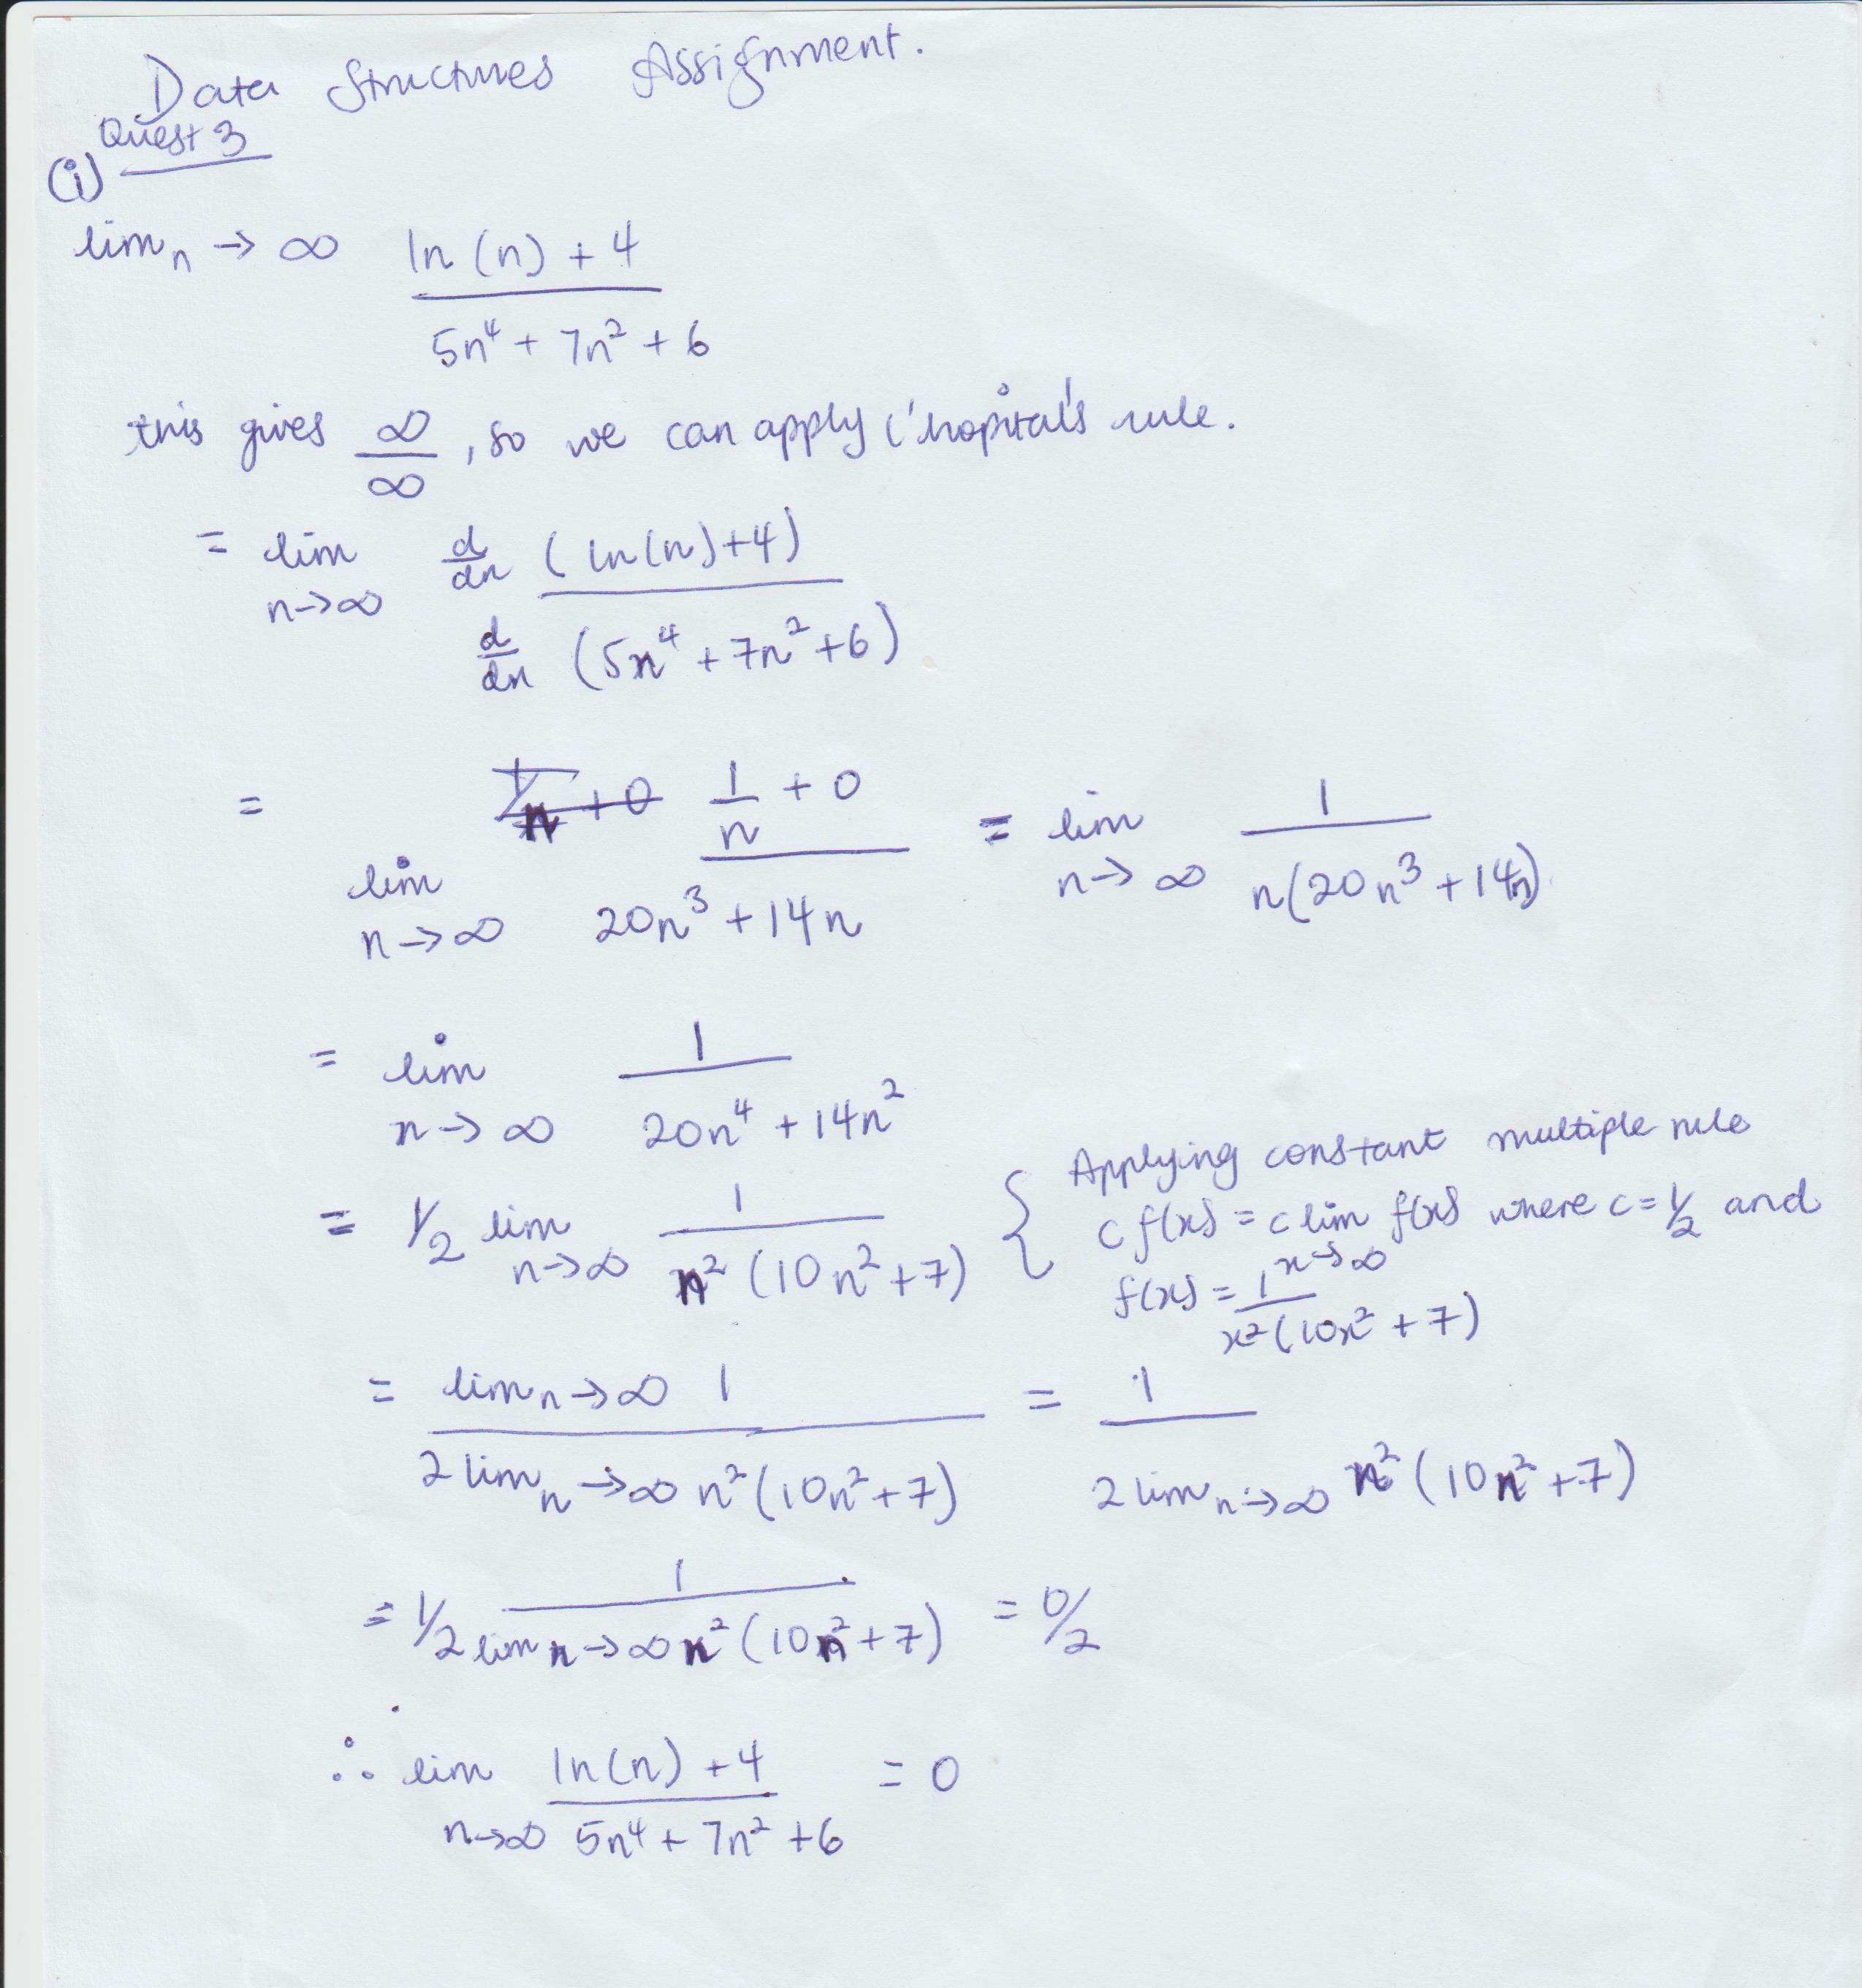 Data Structures Assignment.
Quest 3
(i)
lim n → ∞ ln (n) + 4
5n⁴ + 7n² + 6
this gives ∞/∞, so we can apply l'hopital's rule.
= lim n→∞ d/dn (ln(n)+4)
d/dn (5n⁴ + 7n² + 6)
= lim n→∞ 1/n + 0 1/n + 0 = lim n→∞ 1
20n³ + 14n n(20n³ + 14n)
= lim n→∞ 1
20n⁴ + 14n²
= 1/2 lim n→∞ 1
n² (10n² + 7)
{ Applying constant multiple rule
c f(x) = c lim x→∞ f(x) where c = 1/2 and
f(x) = 1
x² (10x² + 7)
= lim n→∞ 1 = 1
2 lim n→∞ n² (10n² + 7) 2 lim n→∞ n² (10n² + 7)
= 1/2 1 = 0/2
lim n→∞ n² (10n² + 7)
∴ lim n→∞ ln(n) + 4 = 0
5n⁴ + 7n² + 6